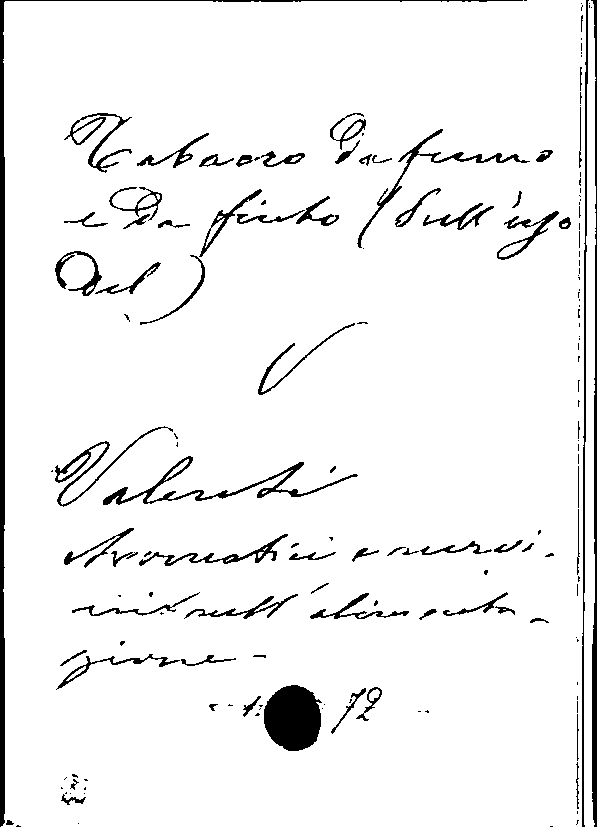 Tabacco da fumo
e da fiuto (Sull'uso
del)
V
Valenti
Aromatici e nervi-
ni nell'alimenta-
zione -
72